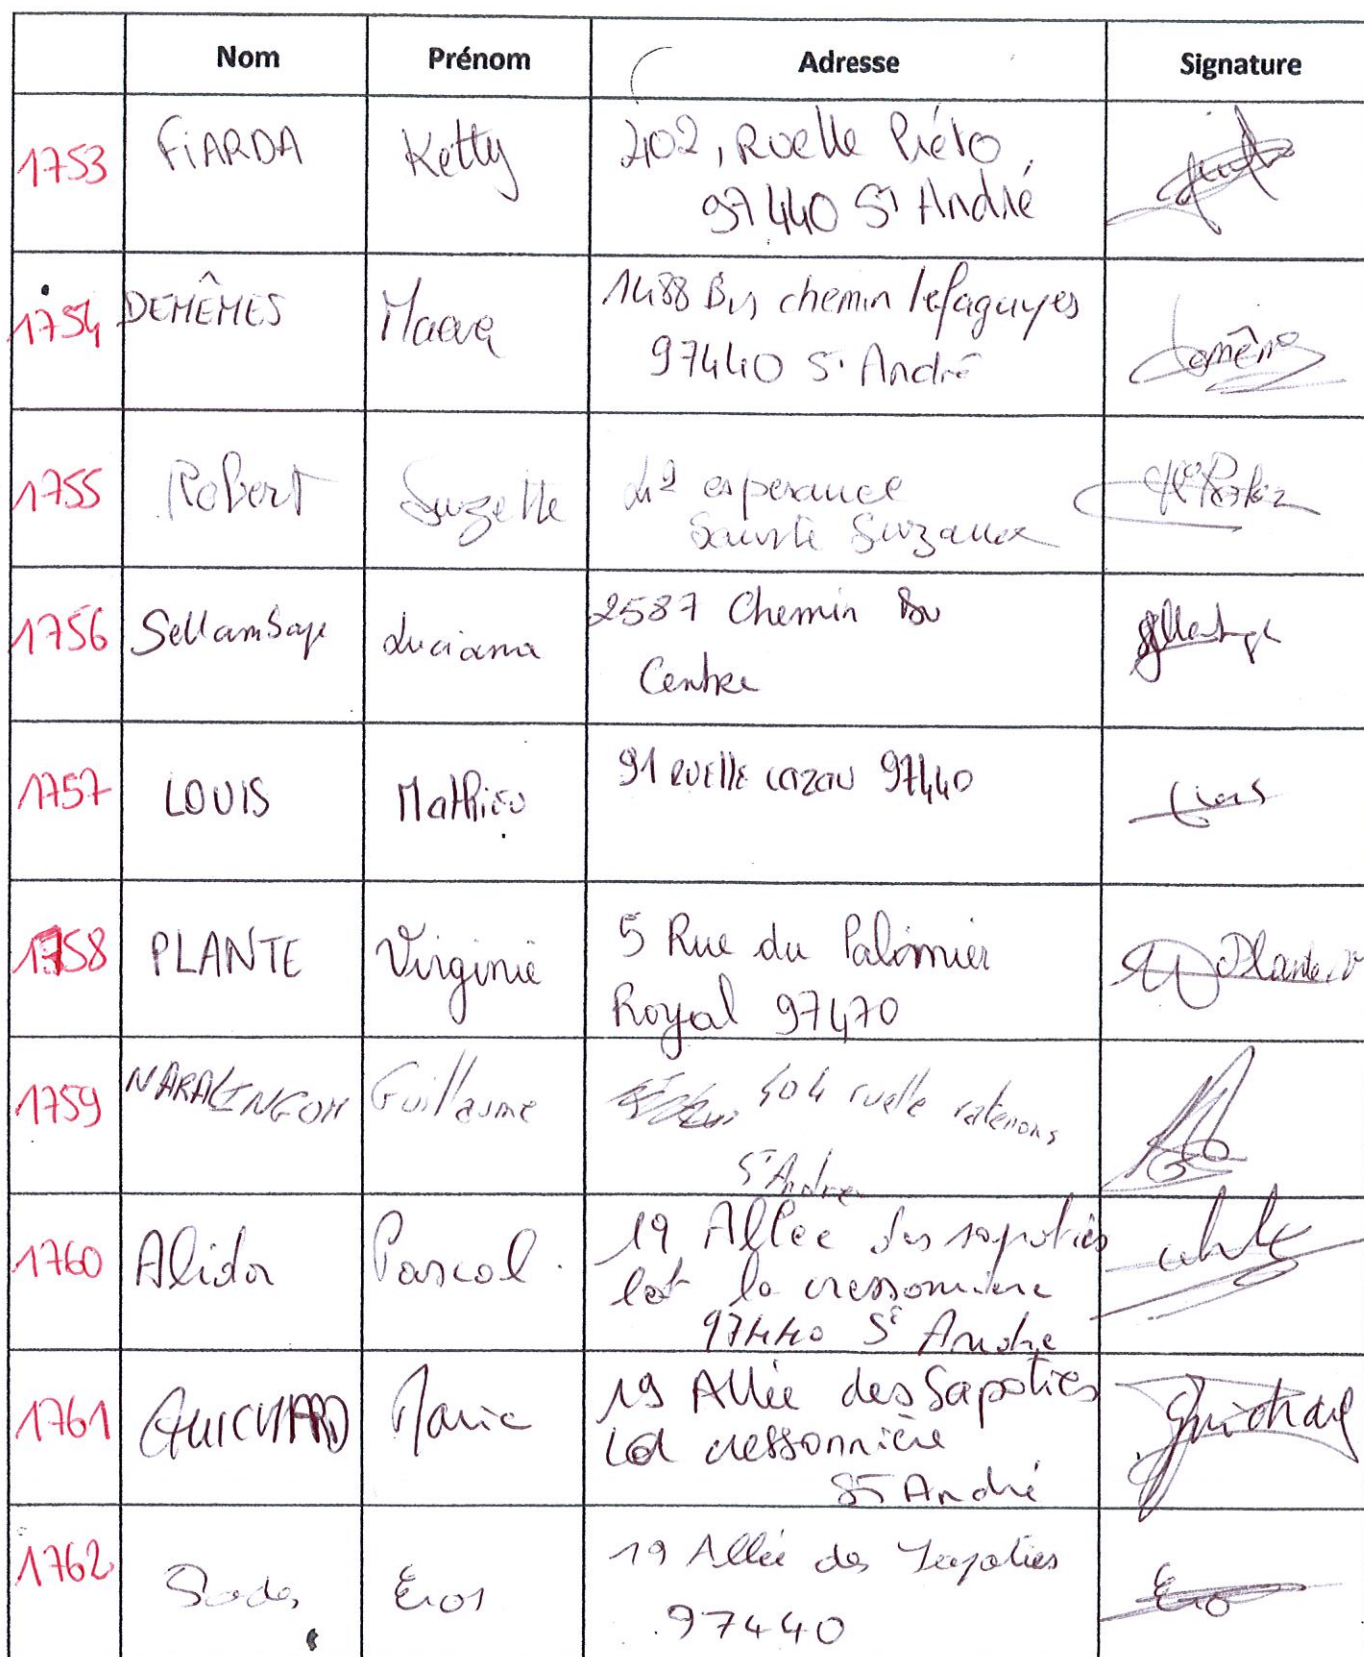 Nom Prénom Adresse Signature
1753 FIARDA Ketty 202, Ruelle Piéto,
97440 St André
1754 DEMÊMES Maeva 1488 Bis chemin lefaguyes
97440 St André
1755 Robert Suzette esperance
Sainte Suzanne
1756 Luciana 2587 Chemin Bu
Centre
1757 LOUIS Mathieu 91 ruelle cazau 97440
1758 PLANTE Virginie 5 Rue du Palmier
Royal 97470
Plante.V
1759 Guillaume 404 ruelle
St André
1760 Alidor Pascal. 19 Allée des sapoties
lot la cressonnière
97440 St Andre
1761 GUICHARD Marie 19 Allée des Sapoties
Lot cressonnière
St André
Guichard
1762 Eros 19 Allée des Sapoties
97440